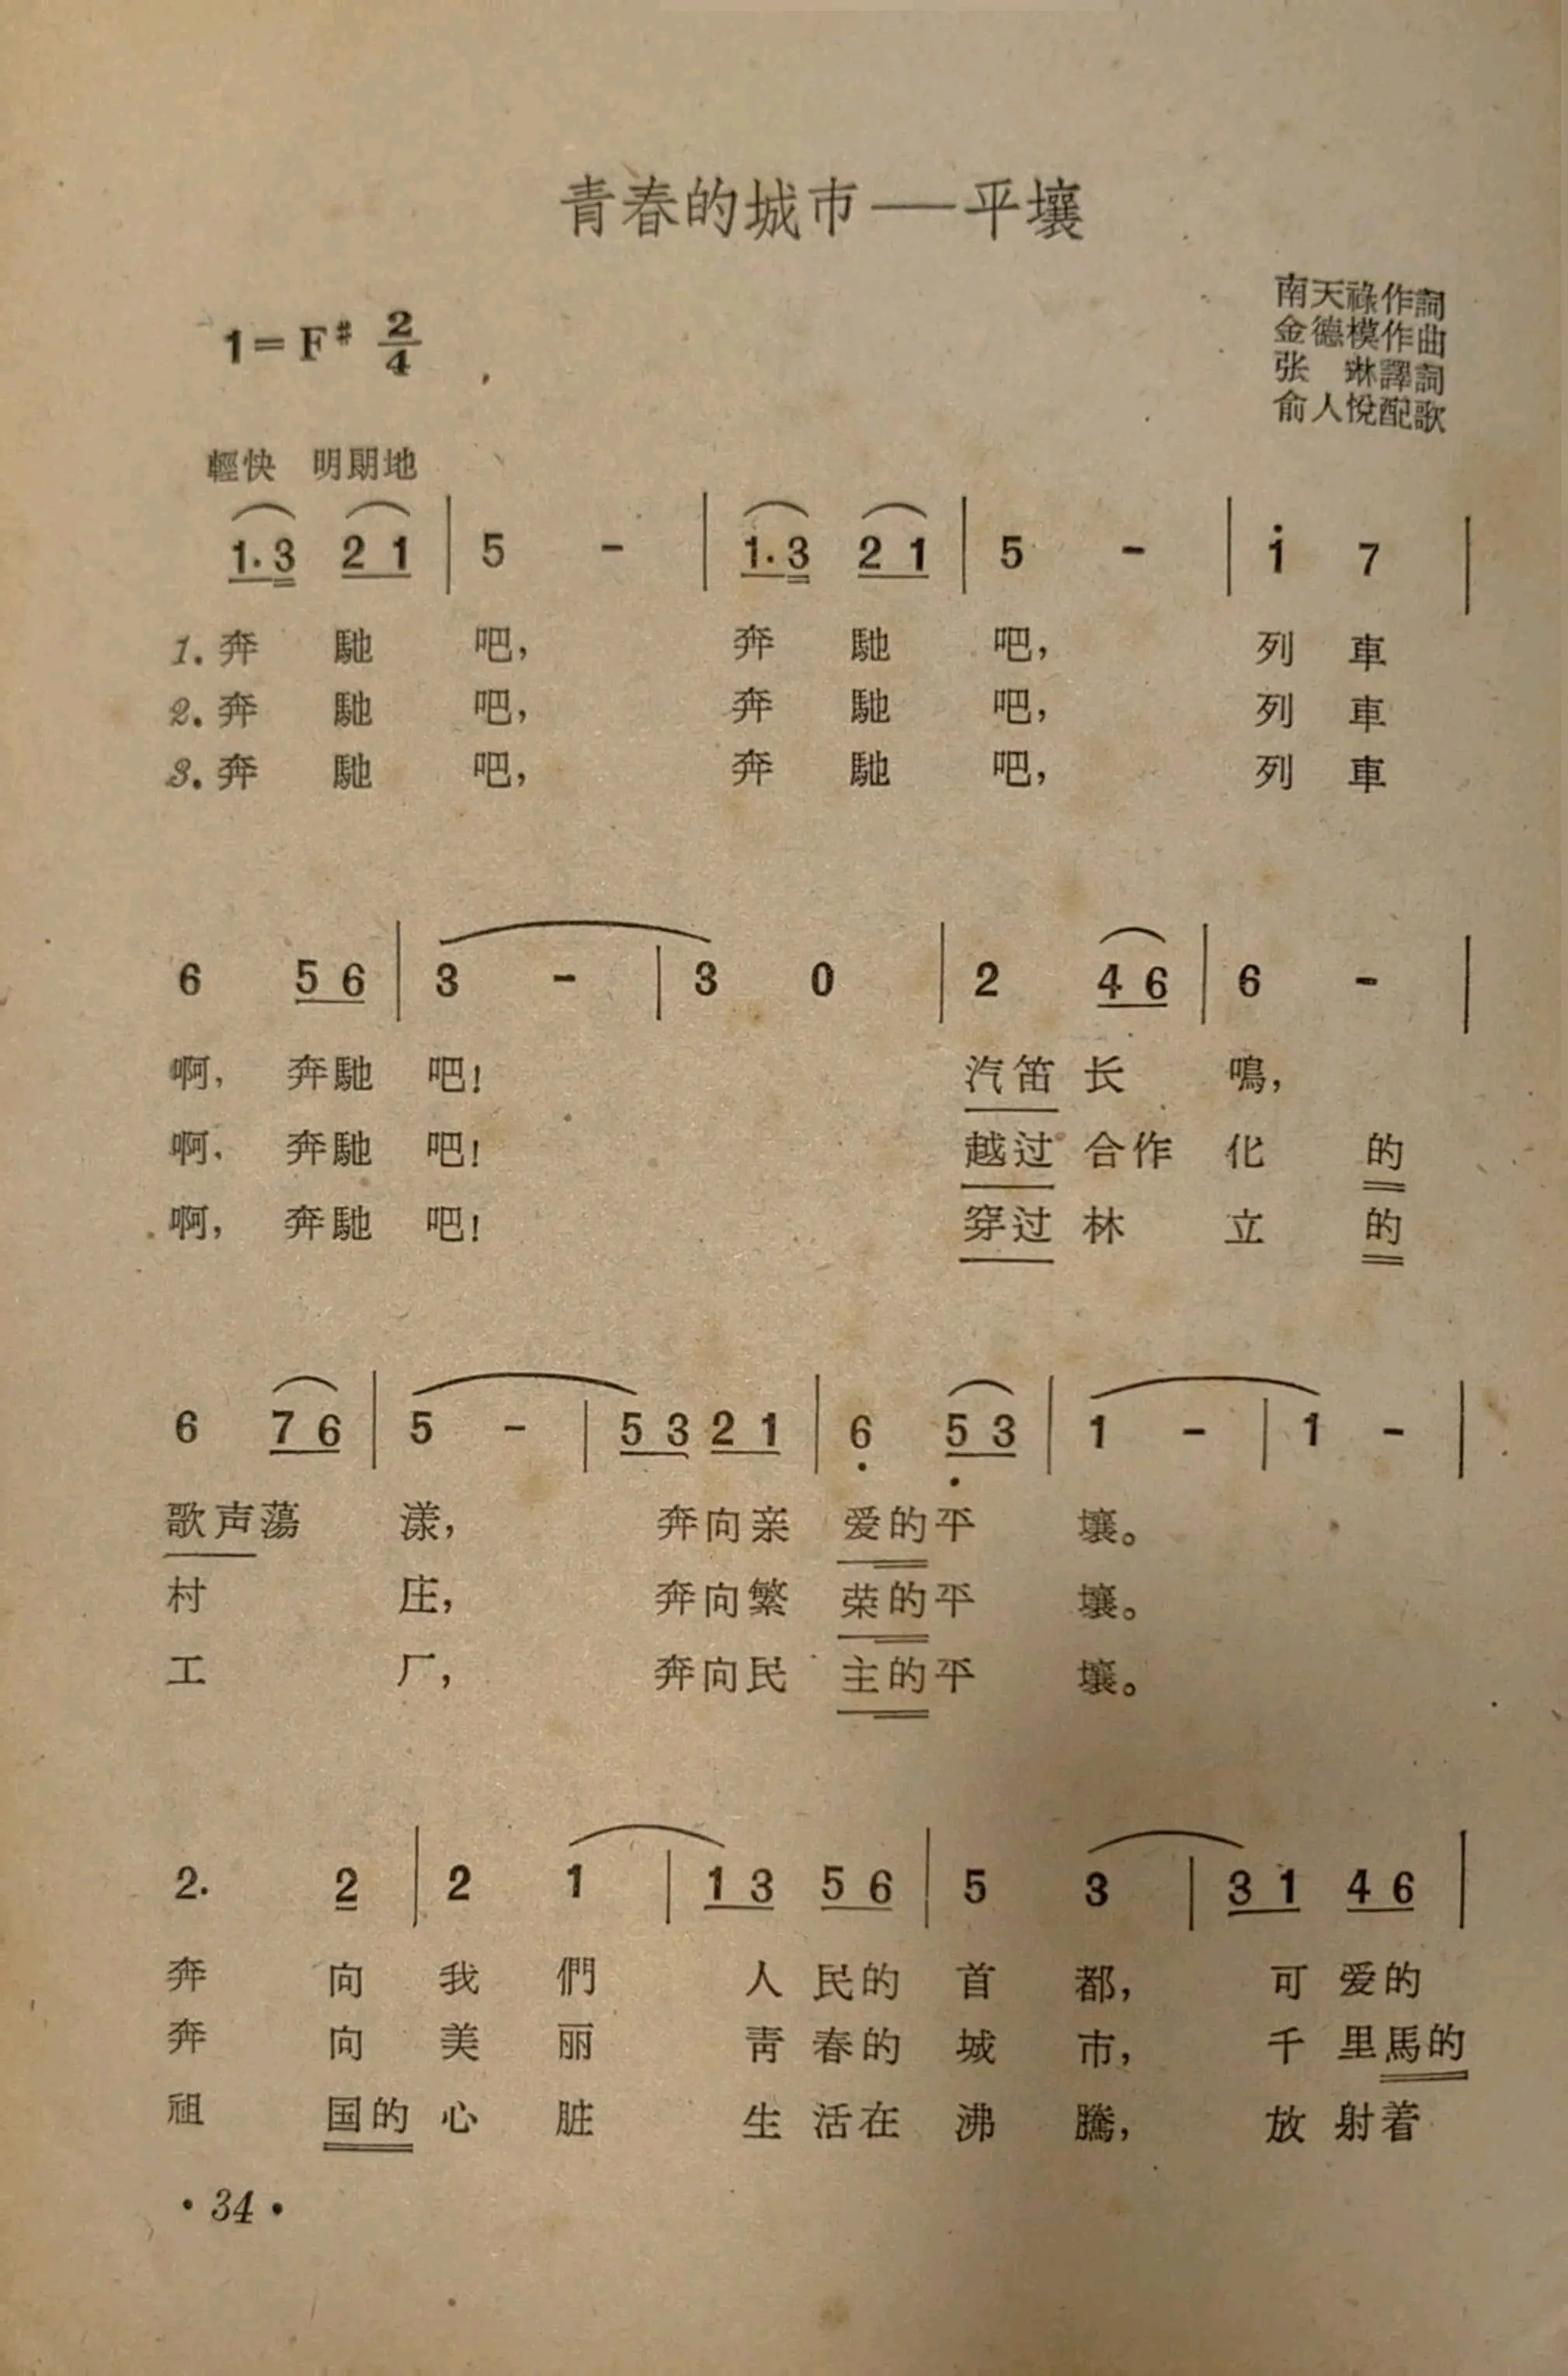 青春的城市——平壤
南天祿作詞
金德模作曲
张 琳譯詞
俞人悅配歌
1=F♯ 2/4
輕快 明朗地
1·3 2 1 | 5 - | 1·3 2 1 | 5 - | i 7 |
1.奔 馳 吧， 奔 馳 吧， 列 車
2.奔 馳 吧， 奔 馳 吧， 列 車
3.奔 馳 吧， 奔 馳 吧， 列 車
6 5 6 | 3 - | 3 0 | 2 4 6 | 6 - |
啊， 奔馳 吧！ 汽笛 长 鳴，
啊， 奔馳 吧！ 越过 合作 化 的
啊， 奔馳 吧！ 穿过 林 立 的
6 7 6 | 5 - | 5 3 2 1 | 6̣ 5̣ 3 | 1 - | 1 - |
歌声蕩 漾， 奔向亲 爱的平 壤。
村 庄， 奔向繁 荣的平 壤。
工 厂， 奔向民 主的平 壤。
2· 2 | 2 1 | 1 3 5 6 | 5 3 | 3 1 4 6 |
奔 向 我 們 人 民的 首 都， 可 爱的
奔 向 美 丽 靑 春的 城 市， 千 里馬的
祖 国的 心 脏 生 活在 沸 騰， 放 射着
·34·